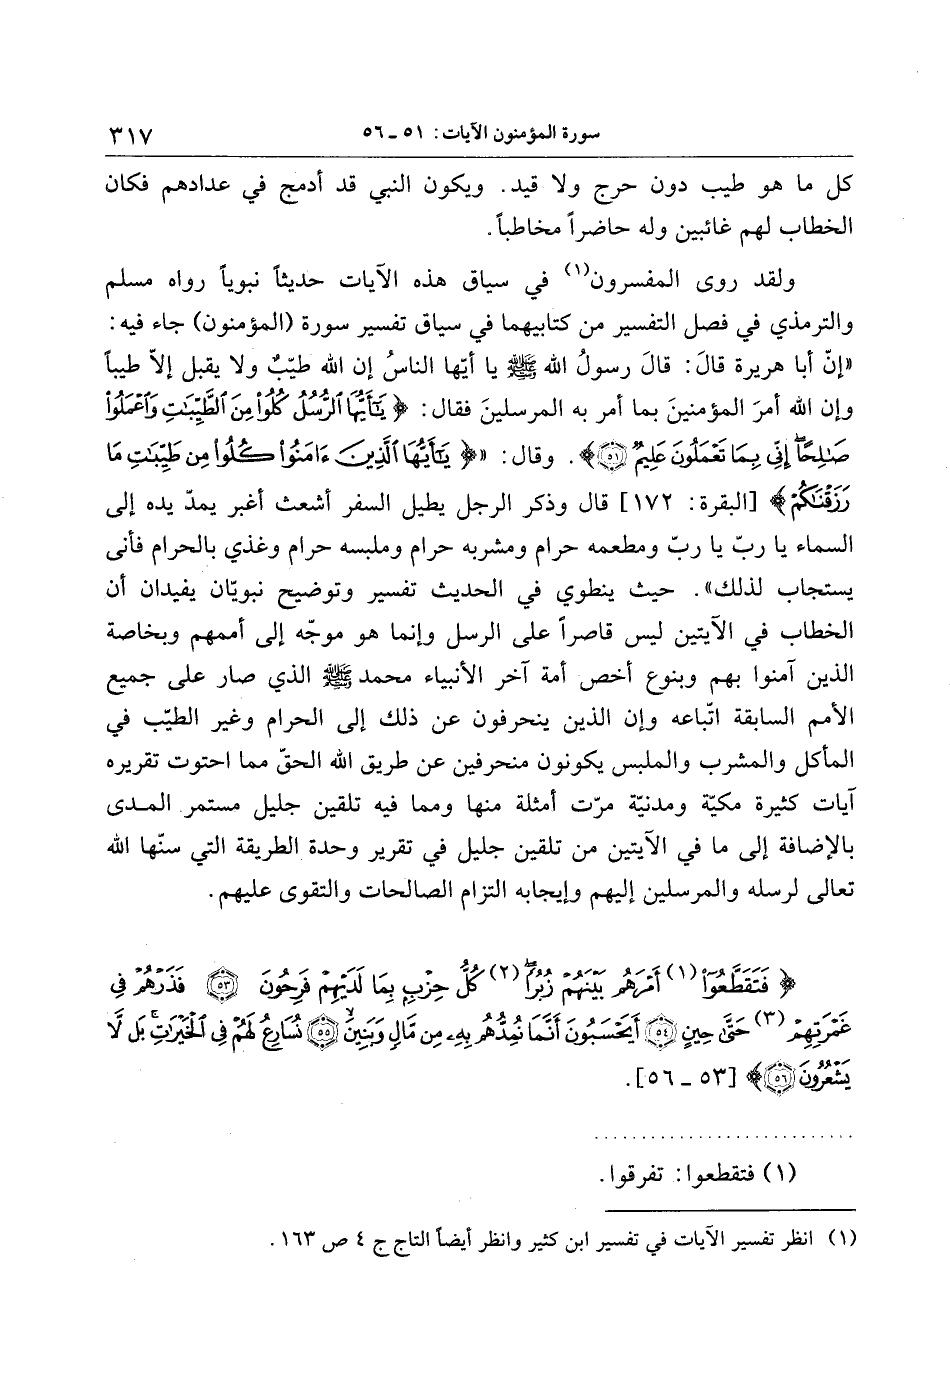 سورة المؤمنون الآيات: ٥١ ـ ٥٦ ٣١٧
كل ما هو طيب دون حرج ولا قيد. ويكون النبي قد أدمج في عدادهم فكان
الخطاب لهم غائبين وله حاضراً مخاطباً.
ولقد روى المفسرون(١) في سياق هذه الآيات حديثاً نبوياً رواه مسلم
والترمذي في فصل التفسير من كتابيهما في سياق تفسير سورة (المؤمنون) جاء فيه:
«إنّ أبا هريرة قالَ: قالَ رسولُ الله ﷺ يا أيّها الناسُ إن الله طيّبٌ ولا يقبل إلاّ طيباً
وإن الله أمرَ المؤمنينَ بما أمر به المرسلينَ فقال: ﴿يَٰٓأَيُّهَا ٱلرُّسُلُ كُلُوا۟ مِنَ ٱلطَّيِّبَٰتِ وَٱعْمَلُوا۟
صَٰلِحًا ۖ إِنِّى بِمَا تَعْمَلُونَ عَلِيمٌ ٥١﴾. وقال: «﴿يَٰٓأَيُّهَا ٱلَّذِينَ ءَامَنُوا۟ كُلُوا۟ مِن طَيِّبَٰتِ مَا
رَزَقْنَٰكُمْ﴾ [البقرة: ١٧٢] قال وذكر الرجل يطيل السفر أشعث أغبر يمدّ يده إلى
السماء يا ربّ يا ربّ ومطعمه حرام ومشربه حرام وملبسه حرام وغذي بالحرام فأنى
يستجاب لذلك». حيث ينطوي في الحديث تفسير وتوضيح نبويّان يفيدان أن
الخطاب في الآيتين ليس قاصراً على الرسل وإنما هو موجّه إلى أممهم وبخاصة
الذين آمنوا بهم وبنوع أخص أمة آخر الأنبياء محمد ﷺ الذي صار على جميع
الأمم السابقة اتّباعه وإن الذين ينحرفون عن ذلك إلى الحرام وغير الطيّب في
المأكل والمشرب والملبس يكونون منحرفين عن طريق الله الحقّ مما احتوت تقريره
آيات كثيرة مكيّة ومدنيّة مرّت أمثلة منها ومما فيه تلقين جليل مستمر المدى
بالإضافة إلى ما في الآيتين من تلقين جليل في تقرير وحدة الطريقة التي سنّها الله
تعالى لرسله والمرسلين إليهم وإيجابه التزام الصالحات والتقوى عليهم.
﴿فَتَقَطَّعُوٓا۟(١) أَمْرَهُم بَيْنَهُمْ زُبُرًا ۖ(٢) كُلُّ حِزْبٍۭ بِمَا لَدَيْهِمْ فَرِحُونَ ٥٣ فَذَرْهُمْ فِى
غَمْرَتِهِمْ(٣) حَتَّىٰ حِينٍ ٥٤ أَيَحْسَبُونَ أَنَّمَا نُمِدُّهُم بِهِۦ مِن مَّالٍ وَبَنِينَ ٥٥ نُسَارِعُ لَهُمْ فِى ٱلْخَيْرَٰتِ ۚ بَل لَّا
يَشْعُرُونَ ٥٦﴾ [٥٣ ـ ٥٦].
(١) فتقطعوا: تفرقوا.
(١) انظر تفسير الآيات في تفسير ابن كثير وانظر أيضاً التاج ج ٤ ص ١٦٣.